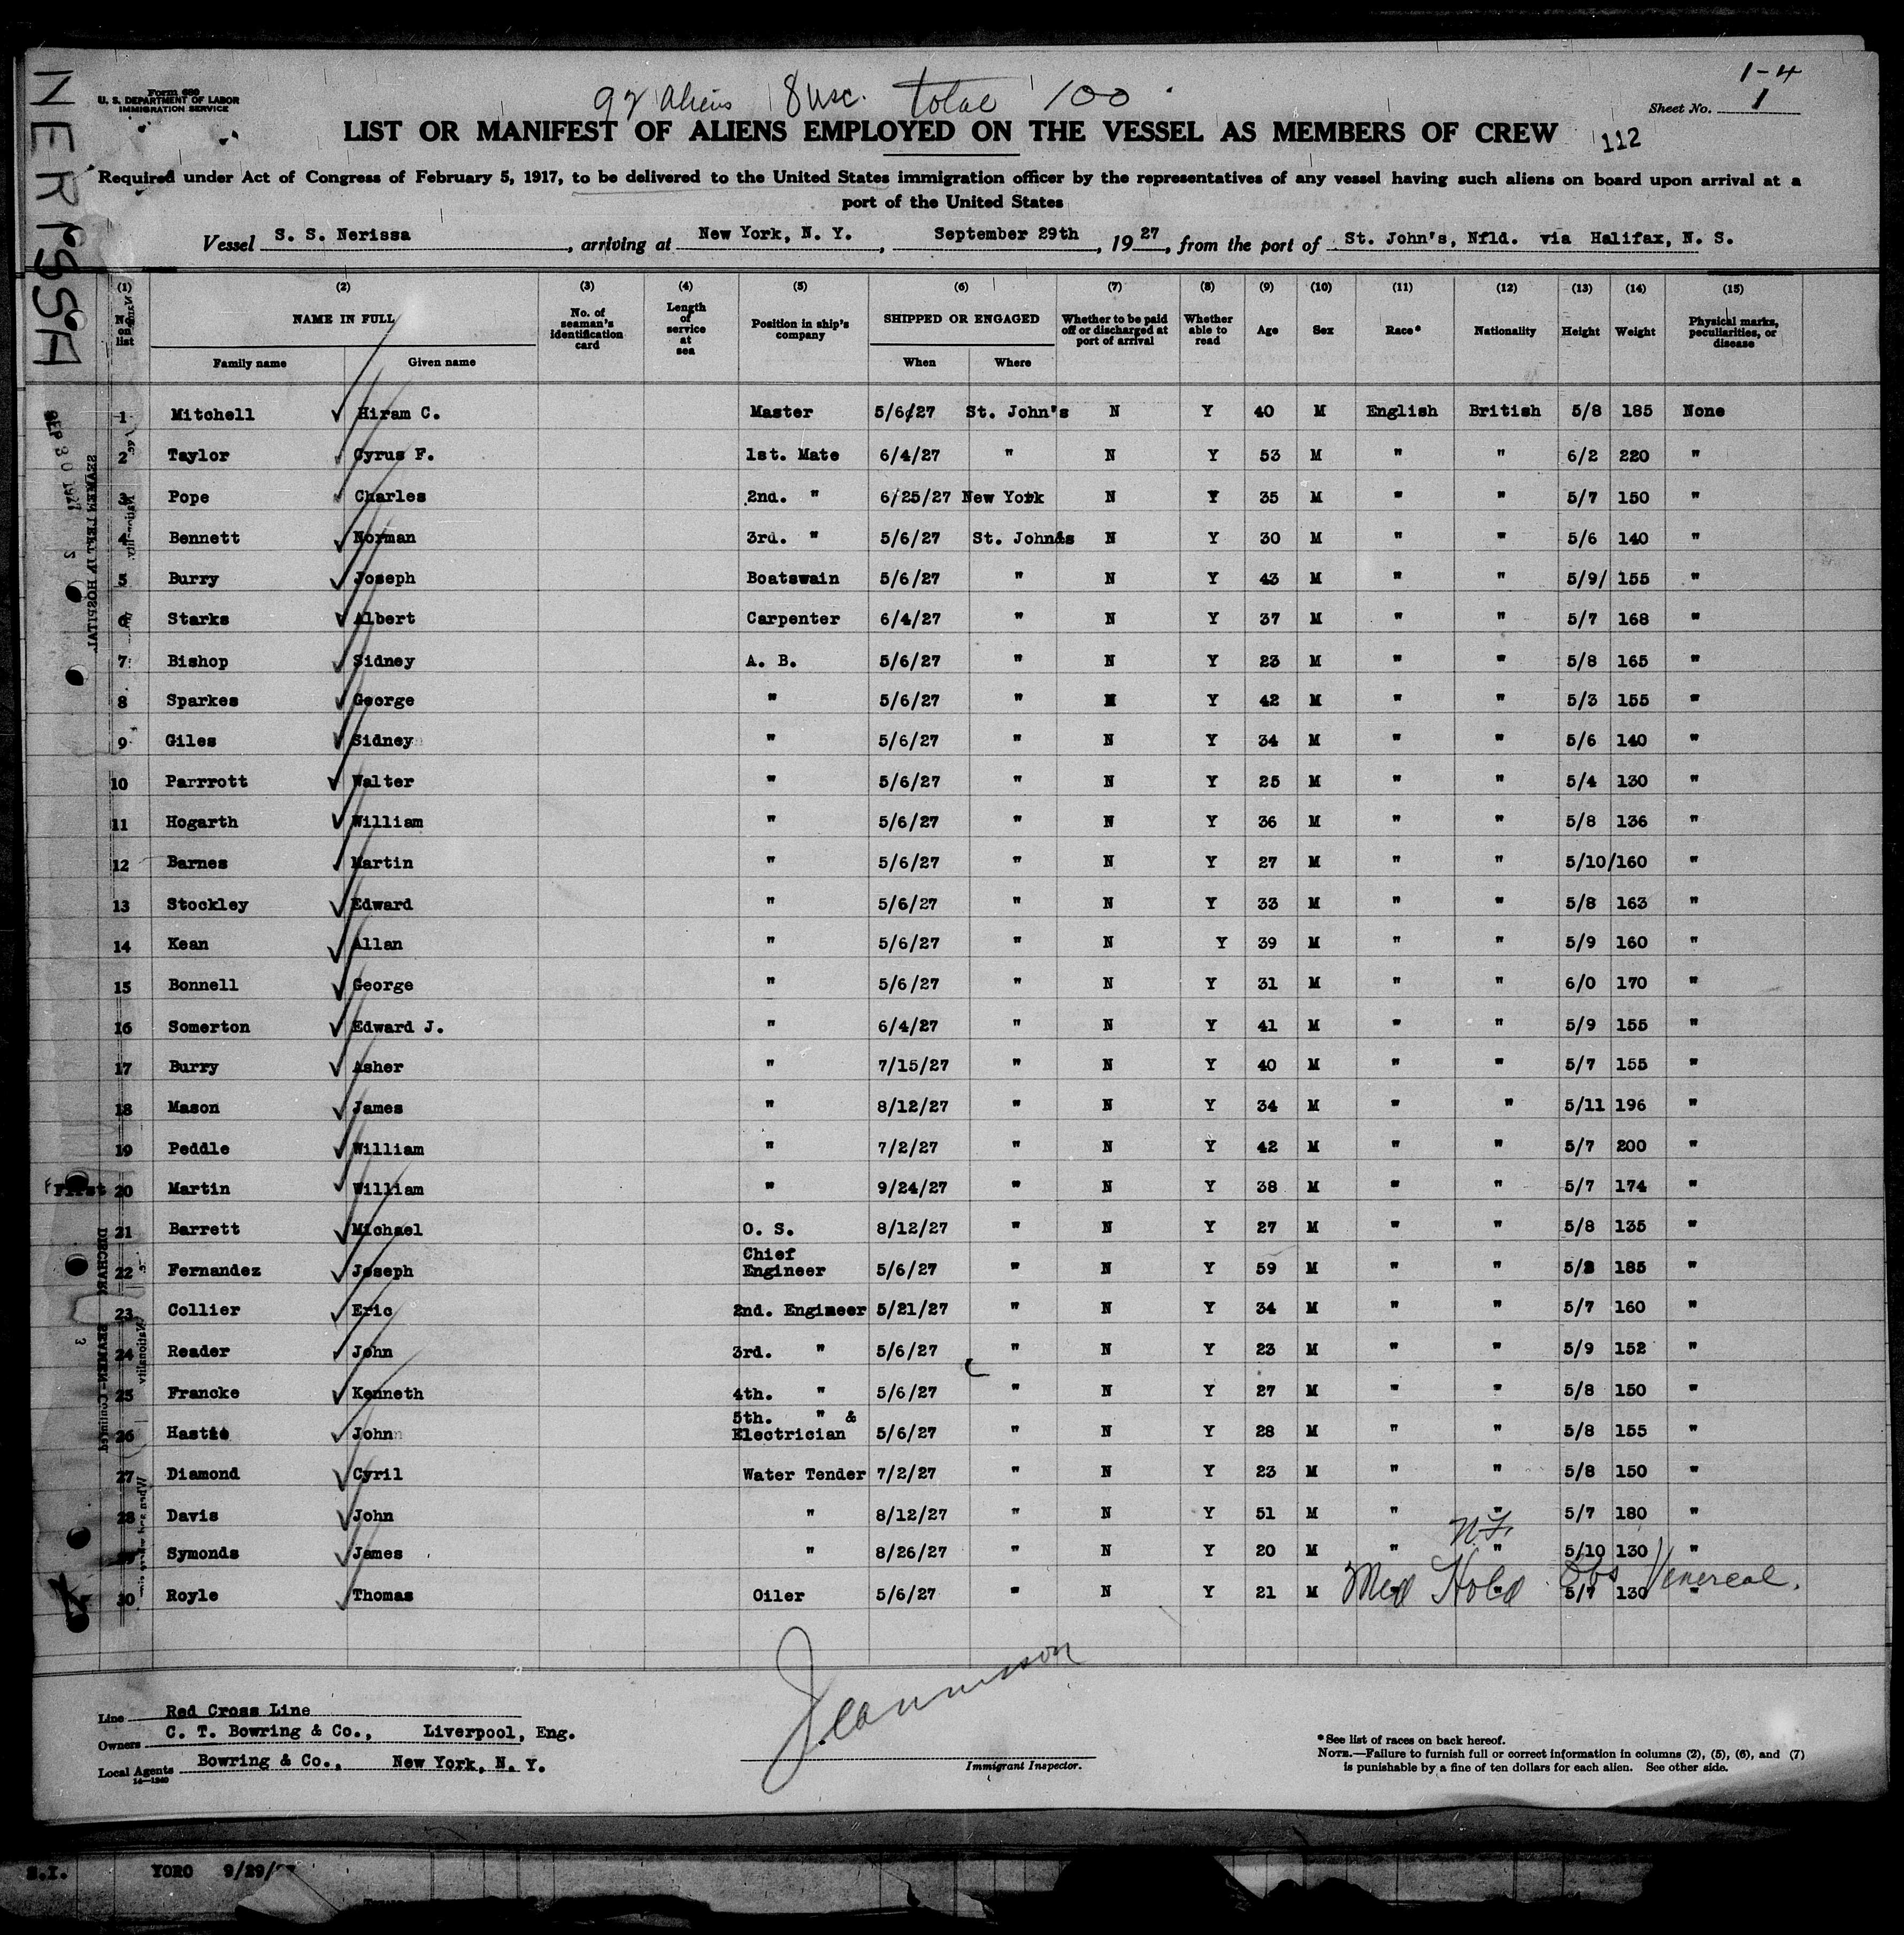 NERISSA
1-4
Form 680
U. S. DEPARTMENT OF LABOR
IMMIGRATION SERVICE
92 aliens 8 usc. total 100
Sheet No. 1
LIST OR MANIFEST OF ALIENS EMPLOYED ON THE VESSEL AS MEMBERS OF CREW
112
Required under Act of Congress of February 5, 1917, to be delivered to the United States immigration officer by the representatives of any vessel having such aliens on board upon arrival at a
port of the United States
Vessel S. S. Nerissa, arriving at New York, N. Y., September 29th, 1927, from the port of St. John's, Nfld. via Halifax, N. S.
(1) (2) (3) (4) (5) (6) (7) (8) (9) (10) (11) (12) (13) (14) (15)
No. on list NAME IN FULL No. of seaman's identification card Length of service at sea Position in ship's company SHIPPED OR ENGAGED Whether to be paid off or discharged at port of arrival Whether able to read Age Sex Race* Nationality Height Weight Physical marks, peculiarities, or disease
Family name Given name When Where
1 Mitchell Hiram C. Master 5/6/27 St. John's N Y 40 M English British 5/8 185 None
2 Taylor Cyrus F. 1st. Mate 6/4/27 " N Y 53 M " " 6/2 220 "
3 Pope Charles 2nd. " 6/25/27 New York N Y 35 M " " 5/7 150 "
4 Bennett Norman 3rd. " 5/6/27 St. John's N Y 30 M " " 5/6 140 "
5 Burry Joseph Boatswain 5/6/27 " N Y 43 M " " 5/9/ 155 "
6 Starks Albert Carpenter 6/4/27 " N Y 37 M " " 5/7 168 "
7 Bishop Sidney A. B. 5/6/27 " N Y 23 M " " 5/8 165 "
8 Sparkes George " 5/6/27 " N Y 42 M " " 5/3 155 "
9 Giles Sidney " 5/6/27 " N Y 34 M " " 5/6 140 "
10 Parrrott Walter " 5/6/27 " N Y 25 M " " 5/4 130 "
11 Hogarth William " 5/6/27 " N Y 36 M " " 5/8 136 "
12 Barnes Martin " 5/6/27 " N Y 27 M " " 5/10/160 "
13 Stockley Edward " 5/6/27 " N Y 33 M " " 5/8 163 "
14 Kean Allan " 5/6/27 " N Y 39 M " " 5/9 160 "
15 Bonnell George " 5/6/27 " N Y 31 M " " 6/0 170 "
16 Somerton Edward J. " 6/4/27 " N Y 41 M " " 5/9 155 "
17 Burry Asher " 7/15/27 " N Y 40 M " " 5/7 155 "
18 Mason James " 8/12/27 " N Y 34 M " " 5/11 196 "
19 Peddle William " 7/2/27 " N Y 42 M " " 5/7 200 "
First 20 Martin William " 9/24/27 " N Y 38 M " " 5/7 174 "
21 Barrett Michael O. S. 8/12/27 " N Y 27 M " " 5/8 135 "
22 Fernandez Joseph Chief Engineer 5/6/27 " N Y 59 M " " 5/8 185 "
23 Collier Eric 2nd. Engineer 5/21/27 " N Y 34 M " " 5/7 160 "
24 Reader John 3rd. " 5/6/27 " N Y 23 M " " 5/9 152 "
25 Francke Kenneth 4th. " 5/6/27 " N Y 27 M " " 5/8 150 "
26 Hastie John 5th. " & Electrician 5/6/27 " N Y 28 M " " 5/8 155 "
27 Diamond Cyril Water Tender 7/2/27 " N Y 23 M " " 5/8 150 "
28 Davis John " 8/12/27 " N Y 51 M " " 5/7 180 "
N.F.
29 Symonds James " 8/26/27 " N Y 20 M " " 5/10 130 "
30 Royle Thomas Oiler 5/6/27 " N Y 21 M " " 5/7 130 "
Med Hold Obs Venereal.
Line Red Cross Line
Owners C. T. Bowring & Co., Liverpool, Eng.
Local Agents Bowring & Co., New York, N. Y.
14—1240
Immigrant Inspector.
*See list of races on back hereof.
NOTE.—Failure to furnish full or correct information in columns (2), (5), (6), and (7)
is punishable by a fine of ten dollars for each alien. See other side.
YORO 9/29/